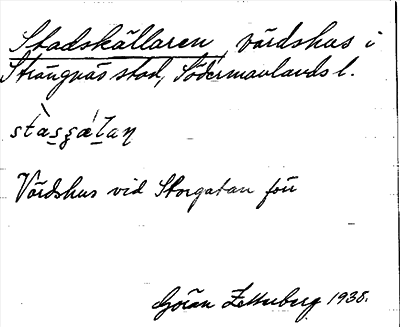 Stadskällaren, värdshus i
Strängnäs stad, Södermanlands l.
Värdshus vid Storgatan förr
Göran Zetterberg 1938.